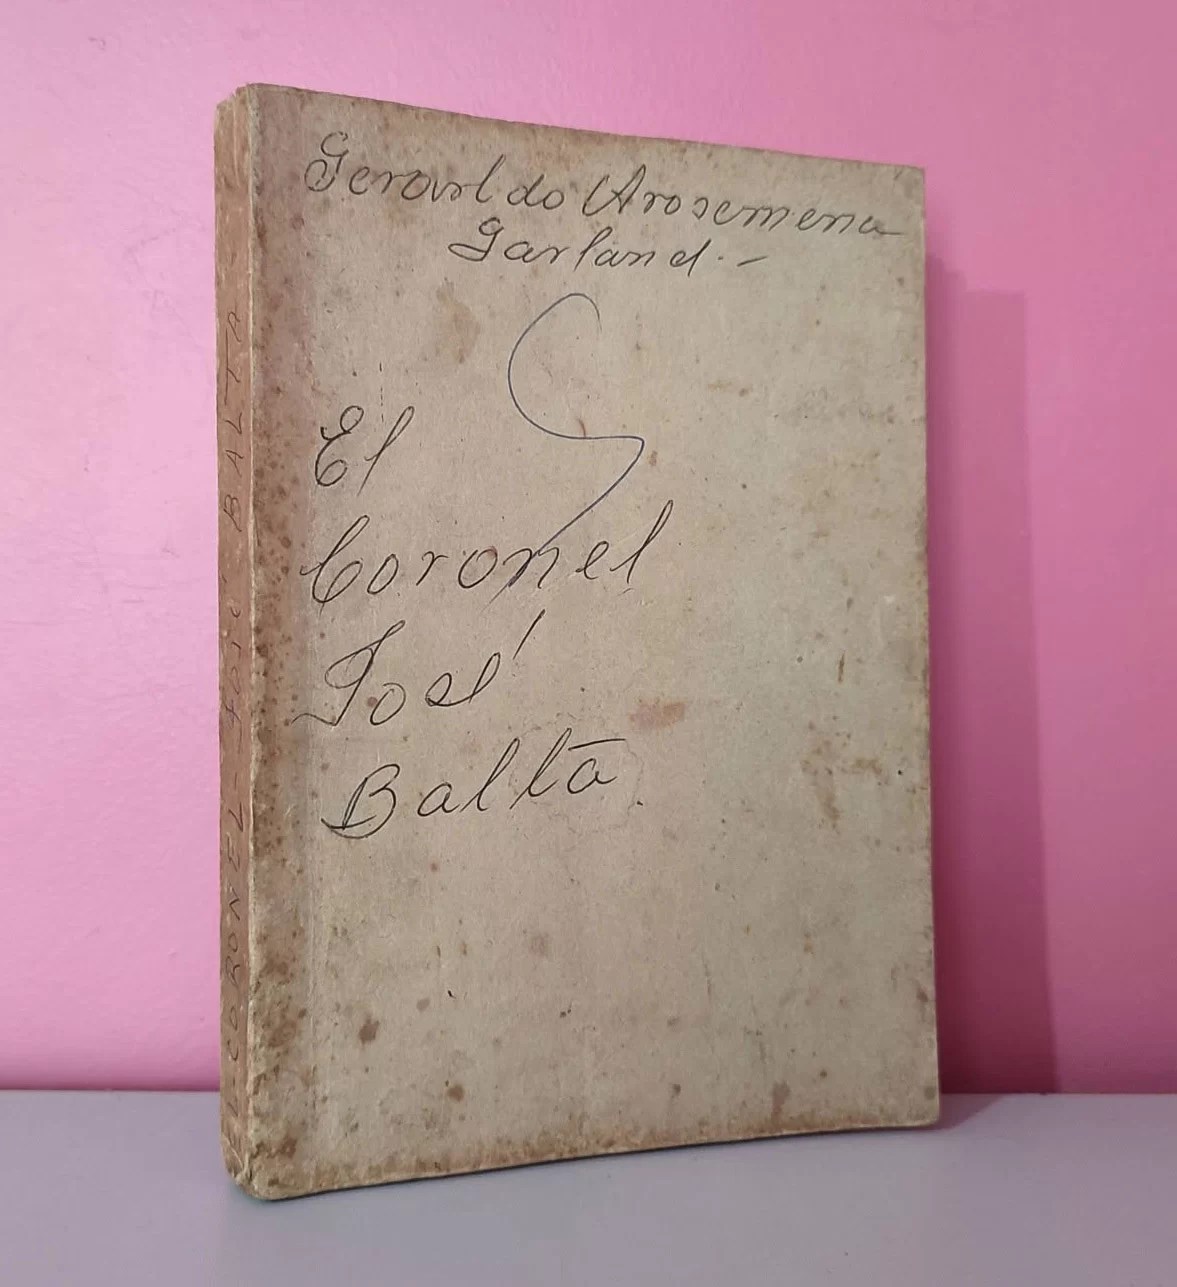 Gerardo Arosemena
Garland.-
El
Coronel
José
Balta
EL CORONEL - JOSÉ BALTA